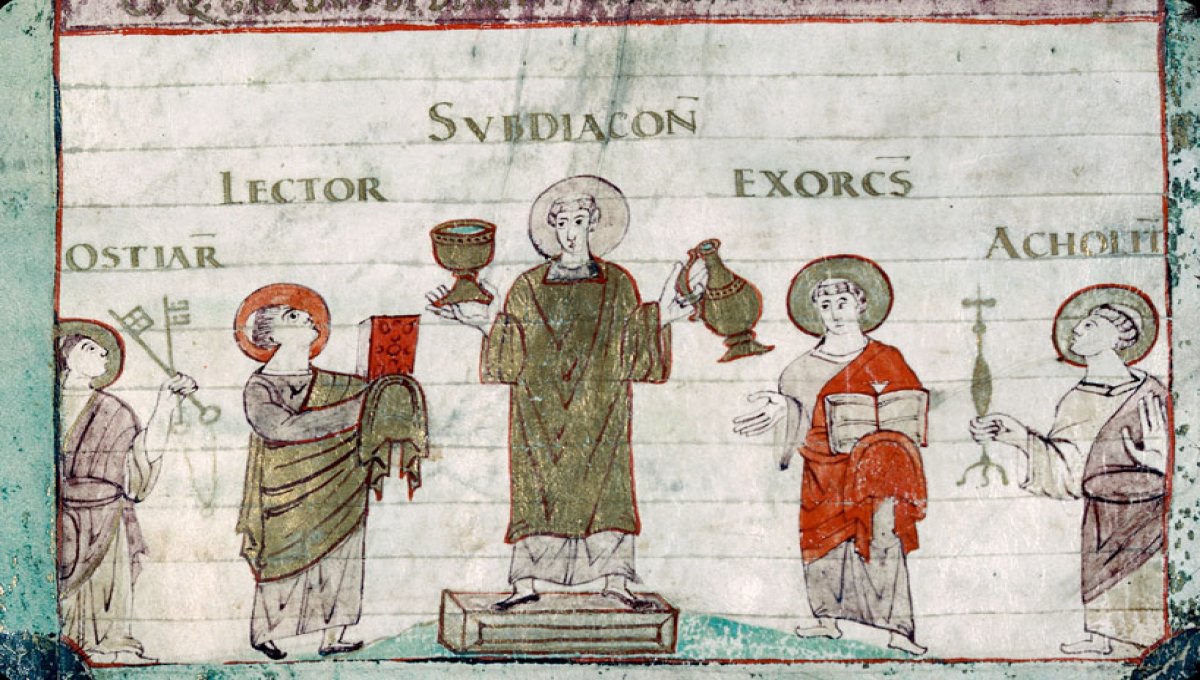 SVBDIACON̄
LECTOR EXORC̄S
OSTIAR̄ ACHOLIT̄